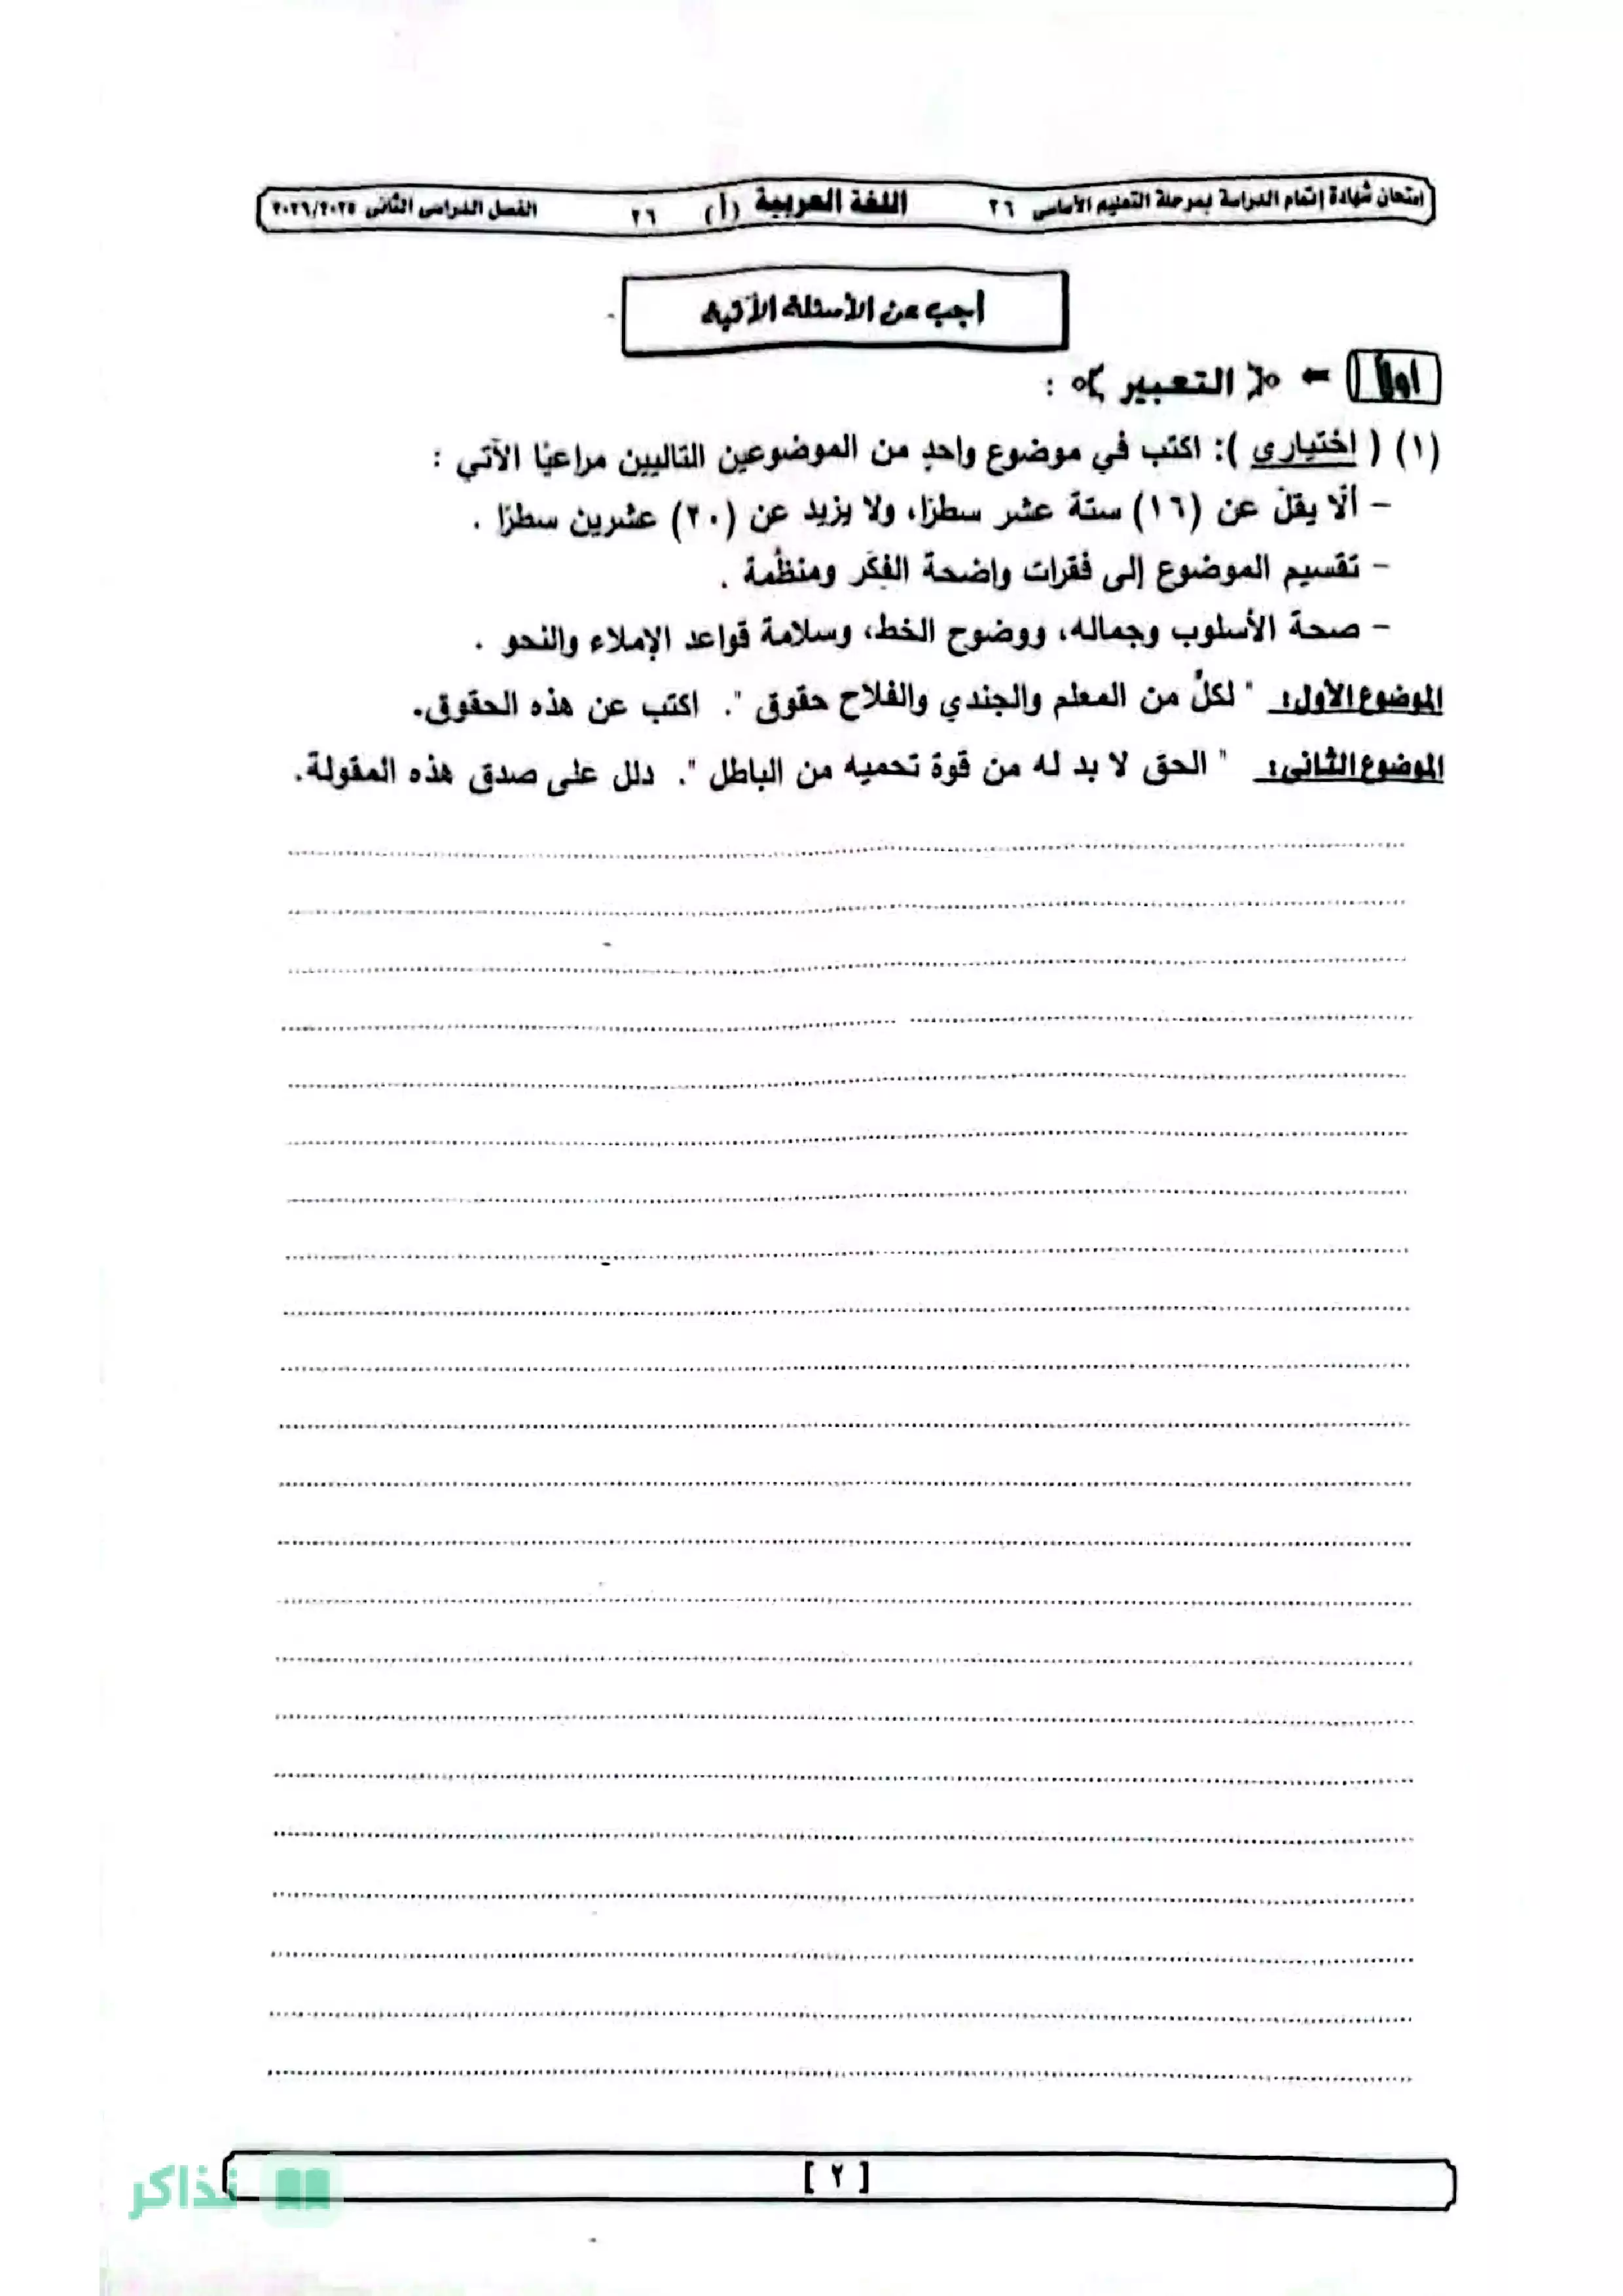 امتحان شهادة إتمام الدراسة بمرحلة التعليم الأساسى ٢٦ اللغة العربية (أ) ٢٦ الفصل الدراسى الثانى ٢٠٢٦/٢٠٢٥
أجب عن الأسئلة الآتية
أولاً ← التعبير :
(١) ( اختيارى ): اكتب في موضوع واحدٍ من الموضوعين التاليين مراعيًا الآتي :
- ألّا يقلّ عن (١٦) ستة عشر سطرًا، ولا يزيد عن (٢٠) عشرين سطرًا .
- تقسيم الموضوع إلى فقرات واضحة الفِكَر ومنظّمة .
- صحة الأسلوب وجماله، ووضوح الخط، وسلامة قواعد الإملاء والنحو .
الموضوع الأول: " لكلٍّ من المعلم والجندي والفلاح حقوق ". اكتب عن هذه الحقوق.
الموضوع الثانى: " الحق لا بد له من قوة تحميه من الباطل ". دلل على صدق هذه المقولة.
[ ٢ ]
نذاكر